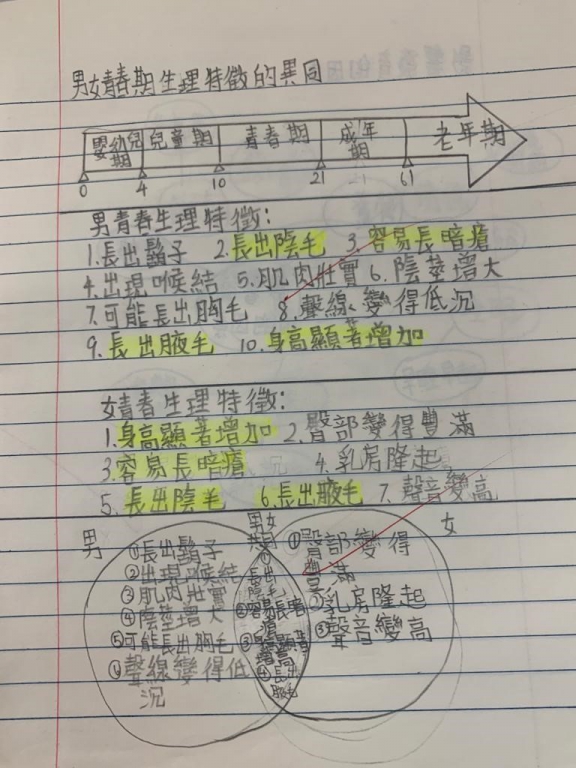 男女青春期生理特徵的異同
嬰幼兒期 兒童期 青春期 成年期 老年期
0 4 10 21 61
男青春生理特徵:
1.長出鬍子 2.長出陰毛 3.容易長暗瘡
4.出現喉結 5.肌肉壯實 6.陰莖增大
7.可能長出胸毛 8.聲線變得低沉
9.長出腋毛 10.身高顯著增加
女青春生理特徵:
1.身高顯著增加 2.臀部變得豐滿
3.容易長暗瘡 4.乳房隆起
5.長出陰毛 6.長出腋毛 7.聲音變高
男
①長出鬍子
②出現喉結
③肌肉壯實
④陰莖增大
⑤可能長出胸毛
⑥聲線變得低
沉
男女
共同
①
長出
陰毛
②容易長暗
瘡
③身高顯著
增高
④長出
腋毛
女
①臀部變得
豐滿
②乳房隆起
③聲音變高